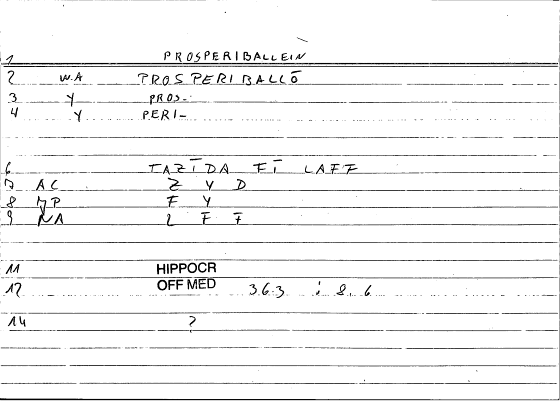 1 PROSPERIBALLEIN
2 W.A PROSPERIBALLŌ
3 Y PROS-
4 Y PERI-
6 TAZĪDA FĪ LAFF
7 AC Z Y D
8 F Y
9 NA L F F
11 HIPPOCR
12 OFF MED 36.3 : 8. 6
14 ?